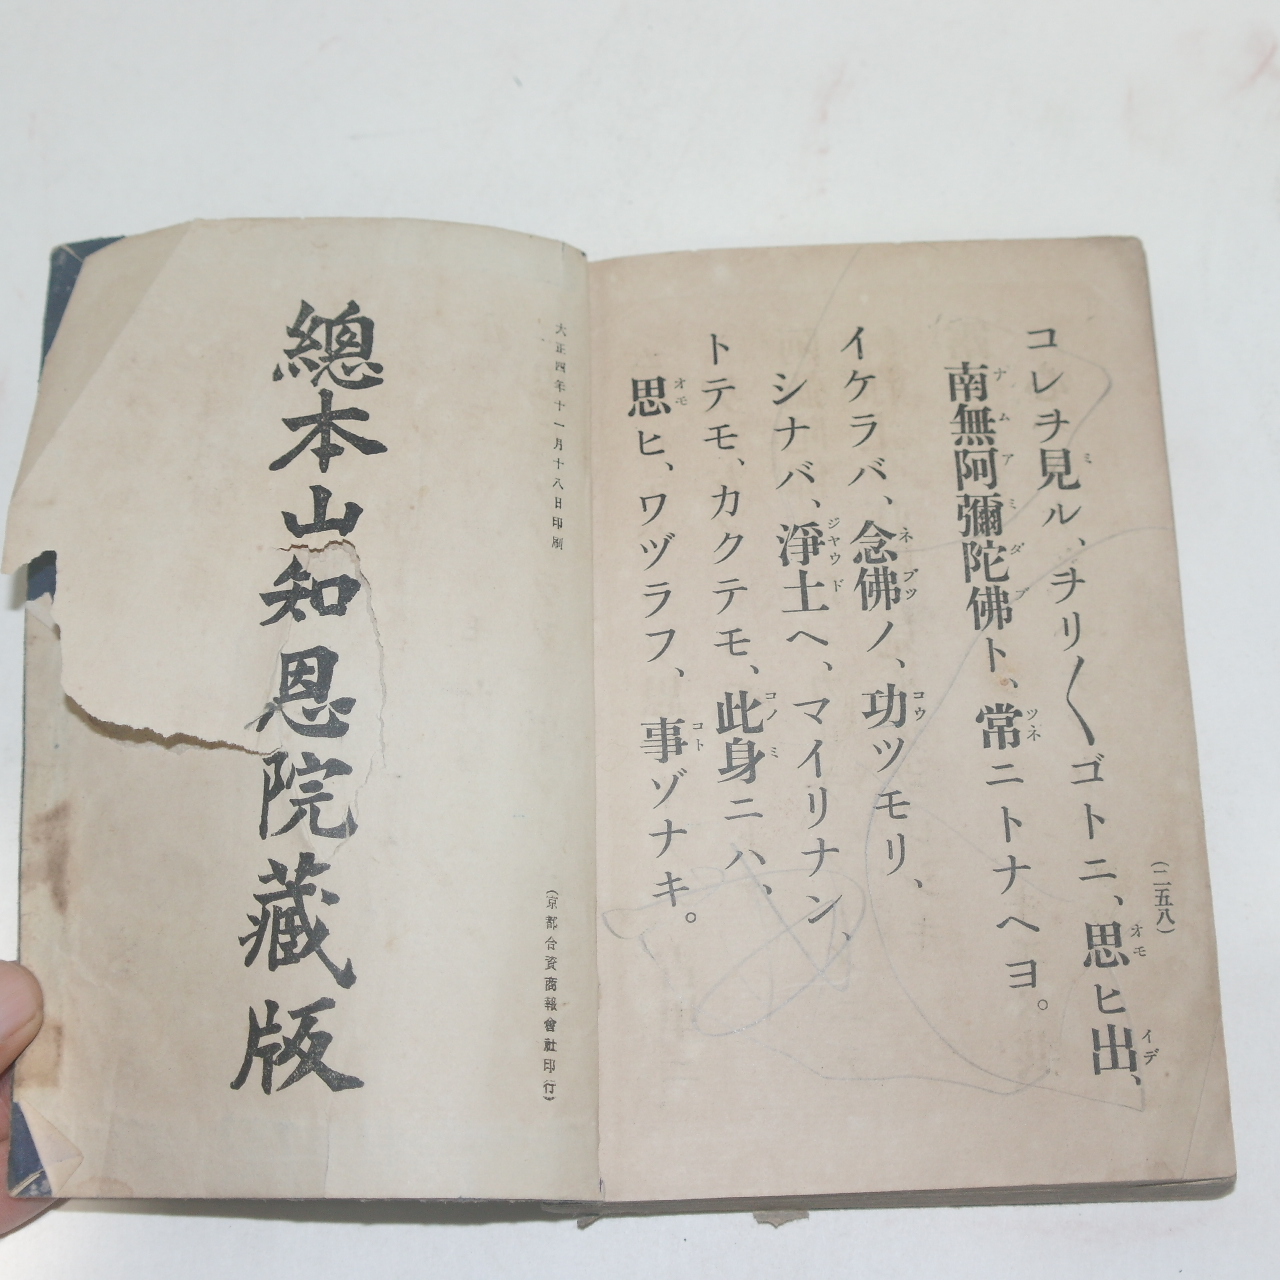 (二五八)
コレヲ見ル、ヲリ〳〵ゴトニ、思ヒ出、
南無阿彌陀佛ト、常ニトナヘヨ。
イケラバ、念佛ノ、功ツモリ、
シナバ、淨土ヘ、マイリナン、
トテモ、カクテモ、此身ニハ、
思ヒ、ワヅラフ、事ゾナキ。
大正四年十一月十八日印刷
(京都合資商報會社印行)
總本山知恩院藏版